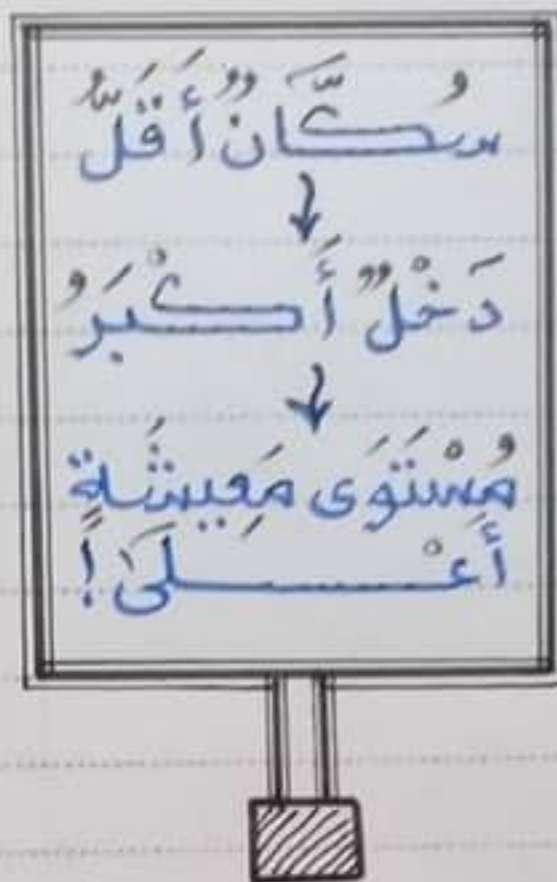 سُكَّانٌ أَقَلُّ
↓
دَخْلٌ أَكْبَرُ
↓
مُسْتَوَى مَعِيشَةٍ
أَعْلَى!